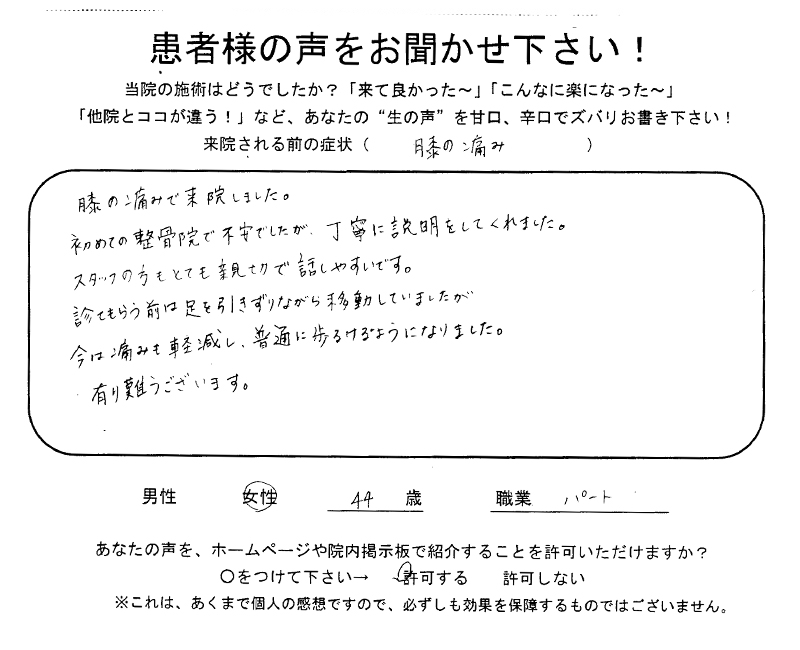 患者様の声をお聞かせ下さい！
当院の施術はどうでしたか？「来て良かった～」「こんなに楽になった～」
「他院とココが違う！」など、あなたの“生の声”を甘口、辛口でズバリお書き下さい！
来院される前の症状（ 膝の痛み ）
膝の痛みで来院しました。
初めての整骨院で不安でしたが、丁寧に説明をしてくれました。
スタッフの方もとても親切で話しやすいです。
診てもらう前は足を引きずりながら移動していましたが
今は痛みも軽減し、普通に歩るけるようになりました。
有り難うございます。
男性 女性 44 歳 職業 パート
あなたの声を、ホームページや院内掲示板で紹介することを許可いただけますか？
〇をつけて下さい→ 許可する 許可しない
※これは、あくまで個人の感想ですので、必ずしも効果を保障するものではございません。